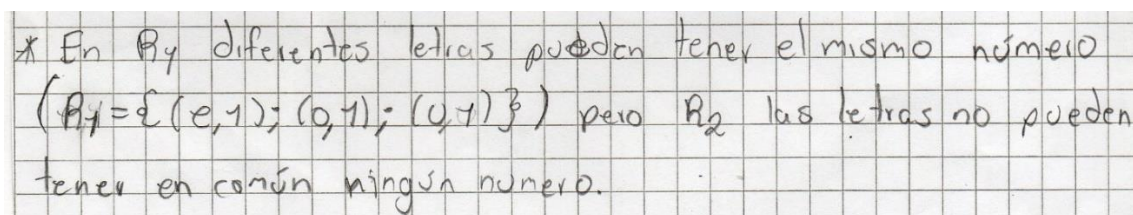 * En R1 diferentes letras pueden tener el mismo número
(R1={(e,1); (o,1); (u,1)}) pero R2 las letras no pueden
tener en común ningún numero.